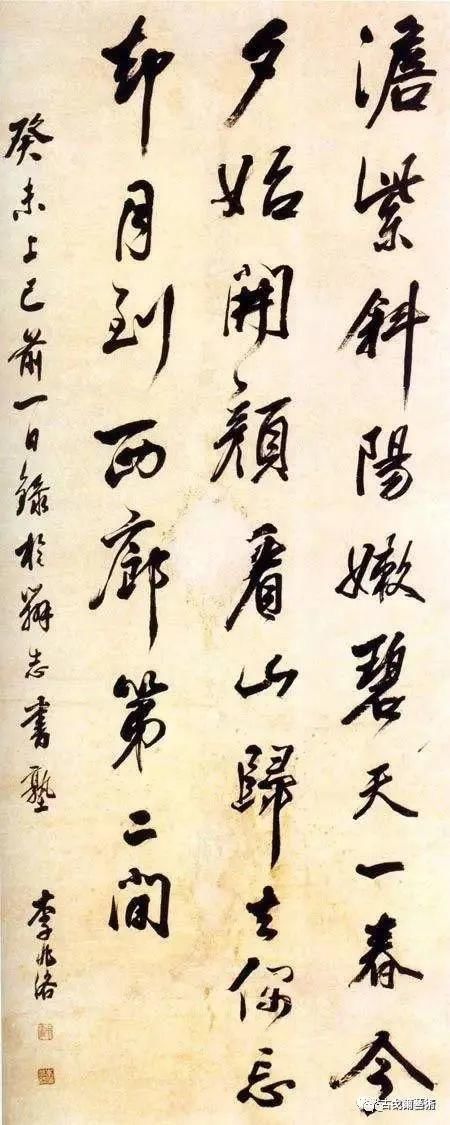 澹紫斜陽嫩碧天一春今
夕始開顏看山歸去偶忘
却月到西廊第二間
癸未上巳前一日錄於辨志書塾
李兆洛
古戈爾藝術